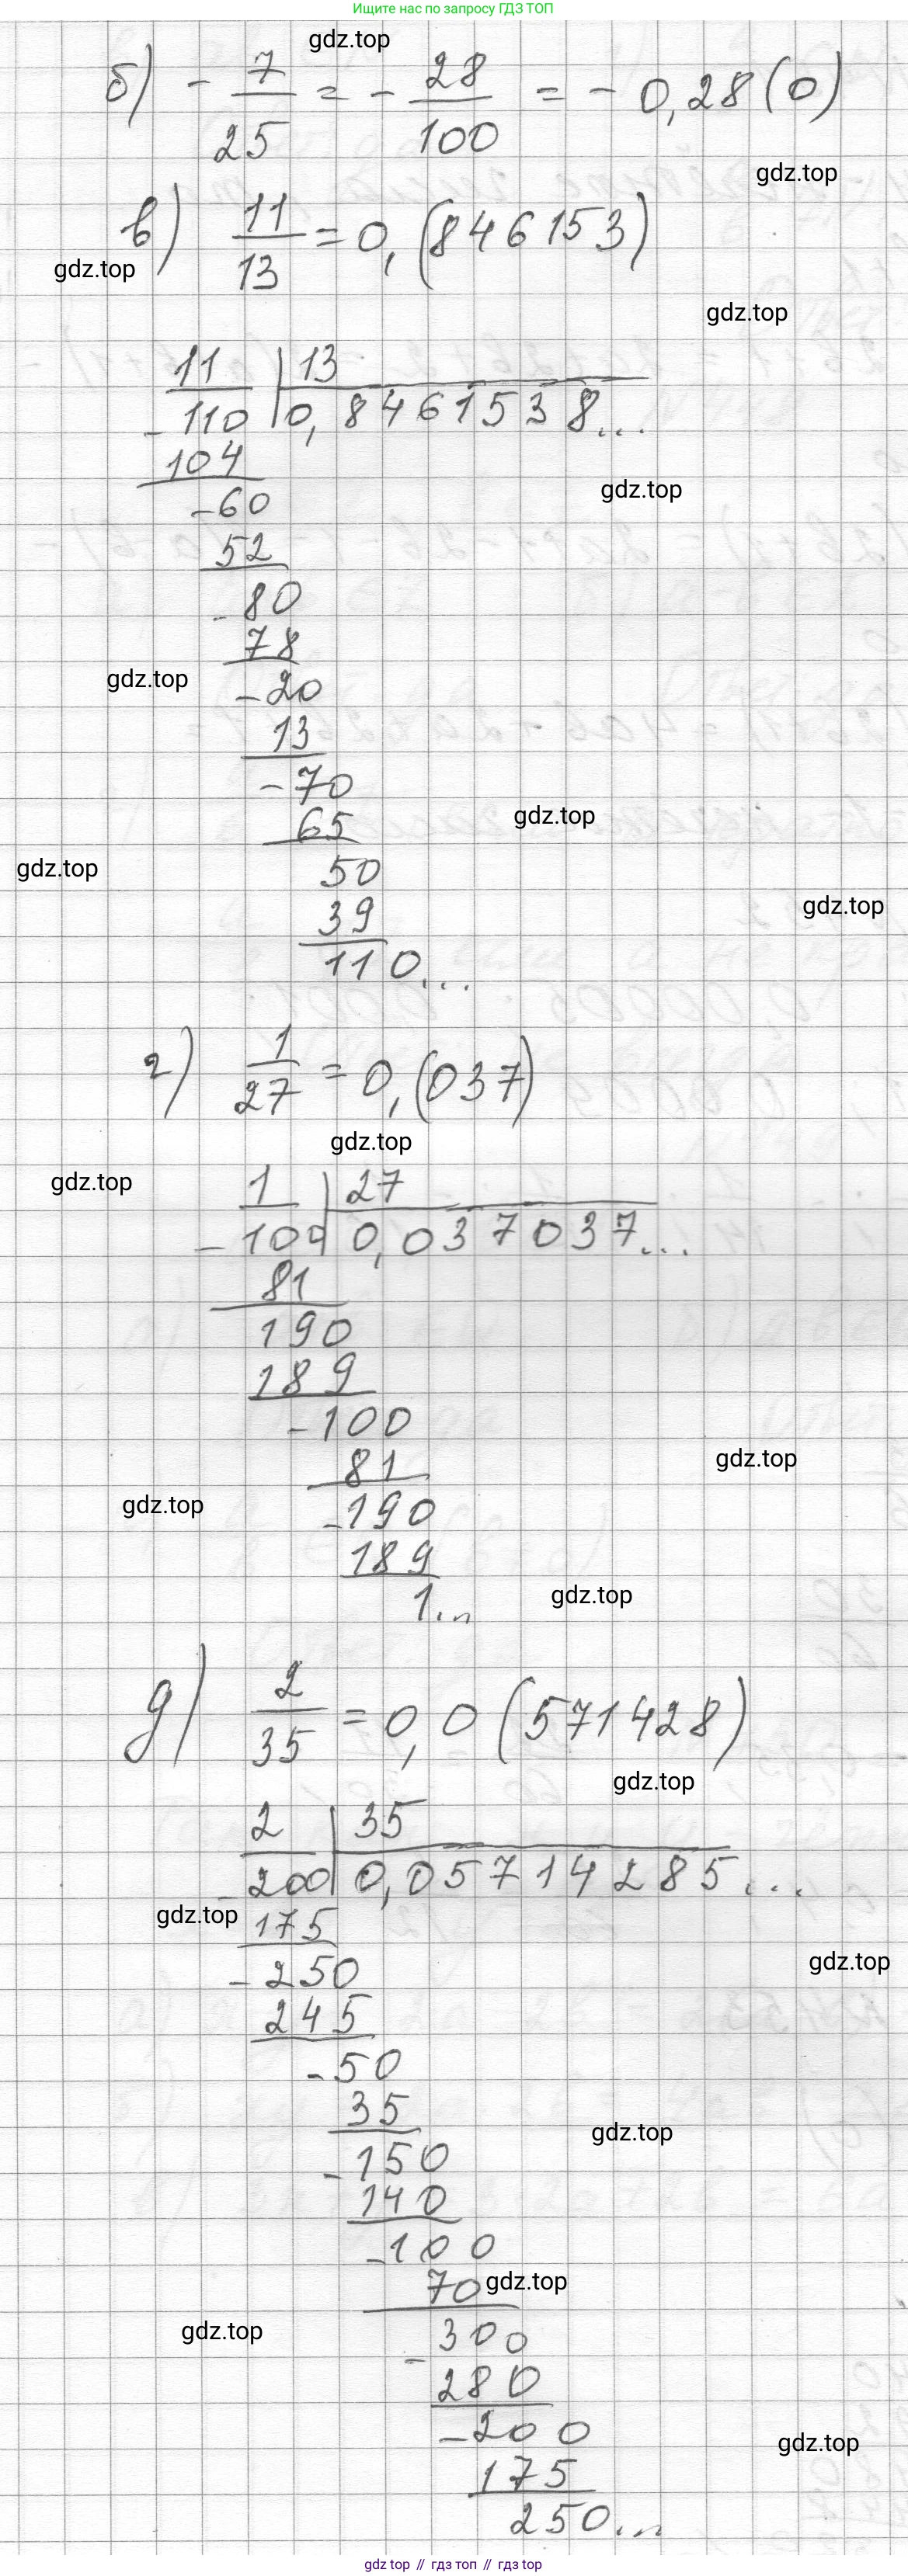 Ищите нас по запросу ГДЗ ТОП
gdz.top
б) - 7/25 = - 28/100 = - 0,28(0)
gdz.top
в) 11/13 = 0,(846153)
gdz.top
gdz.top
11 | 13
- 110 | 0,8461538...
104
gdz.top
- 60
52
- 80
78
gdz.top
- 20
13
- 70
gdz.top
65
gdz.top
50
gdz.top
39
110...
г) 1/27 = 0,(037)
gdz.top
gdz.top
1 | 27
- 100 | 0,037037...
81
190
189
- 100
gdz.top
81
gdz.top
- 190
189
gdz.top
1...
д) 2/35 = 0,0(571428)
gdz.top
2 | 35
- 200 | 0,05714285...
gdz.top
175
gdz.top
- 250
245
- 50
35
gdz.top
- 150
140
- 100
70
gdz.top
gdz.top
- 300
280
- 200
gdz.top
175
250...
gdz top // гдз топ // gdz top